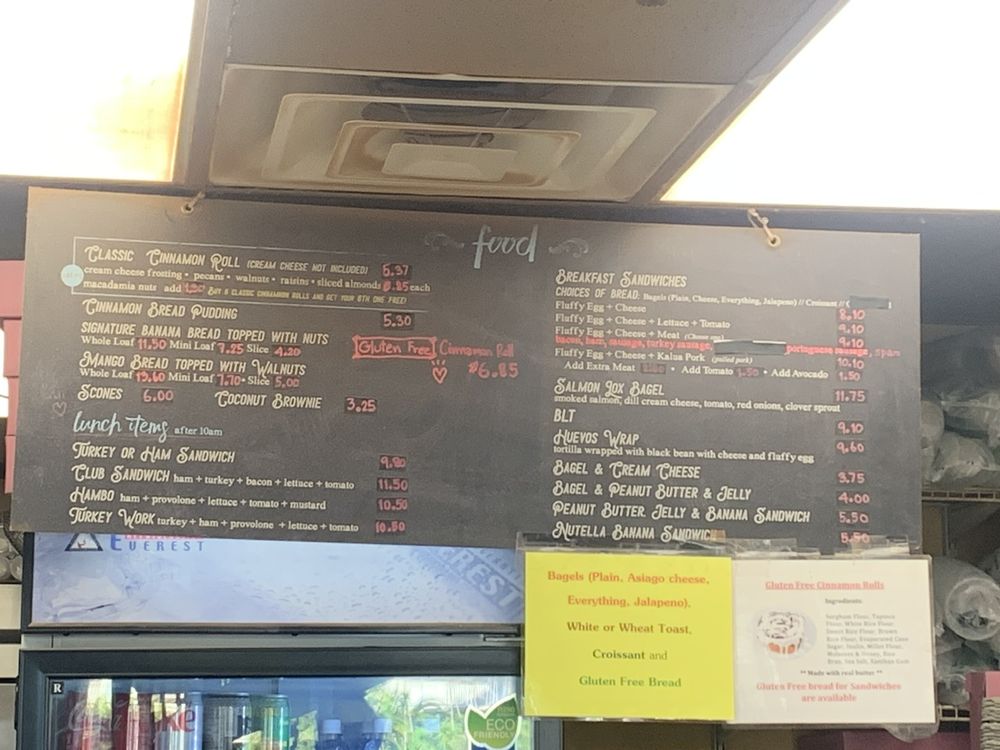 food
CLASSIC CINNAMON ROLL (CREAM CHEESE NOT INCLUDED) 5.37
cream cheese frosting • pecans • walnuts • raisins • sliced almonds .85 each
macadamia nuts add BUY 6 CLASSIC CINNAMON ROLLS AND GET YOUR 6TH ONE FREE!
CINNAMON BREAD PUDDING 5.30
SIGNATURE BANANA BREAD TOPPED WITH NUTS
Whole Loaf 11.50 Mini Loaf 7.25 Slice 4.20
MANGO BREAD TOPPED WITH WALNUTS
Whole Loaf 13.60 Mini Loaf 7.70 • Slice 5.00
SCONES 6.00 COCONUT BROWNIE 3.25
Gluten Free Cinnamon Roll
$6.85
lunch items after 10am
TURKEY OR HAM SANDWICH 9.80
CLUB SANDWICH ham + turkey + bacon + lettuce + tomato 11.50
HAMBO ham + provolone + lettuce + tomato + mustard 10.50
TURKEY WORK turkey + ham + provolone + lettuce + tomato 10.50
BREAKFAST SANDWICHES
CHOICES OF BREAD: Bagels (Plain, Cheese, Everything, Jalapeno) // Croissant //
Fluffy Egg + Cheese 8.10
Fluffy Egg + Cheese + Lettuce + Tomato 9.10
Fluffy Egg + Cheese + Meat 9.10
bacon, ham, sausage, turkey sausage, portuguese sausage, spam
Fluffy Egg + Cheese + Kalua Pork (pulled pork) 10.10
Add Extra Meat • Add Tomato .50 • Add Avocado 1.50
SALMON LOX BAGEL 11.75
smoked salmon, dill cream cheese, tomato, red onions, clover sprout
BLT 9.10
HUEVOS WRAP 9.60
tortilla wrapped with black bean with cheese and fluffy egg
BAGEL & CREAM CHEESE 3.75
BAGEL & PEANUT BUTTER & JELLY 4.00
PEANUT BUTTER JELLY & BANANA SANDWICH 5.50
NUTELLA BANANA SANDWICH 5.50
EVEREST
Bagels (Plain, Asiago cheese,
Everything, Jalapeno),
White or Wheat Toast,
Croissant and
Gluten Free Bread
Gluten Free Cinnamon Rolls
Ingredients:
Sorghum Flour, Tapioca
Flour, White Rice Flour,
Sweet Rice Flour, Brown
Rice Flour, Evaporated Cane
Sugar, Inulin, Millet Flour,
Molasses & Honey, Rice
Bran, Sea Salt, Xanthan Gum
** Made with real butter **
Gluten Free bread for Sandwiches
are available
R
ECO
FRIENDLY